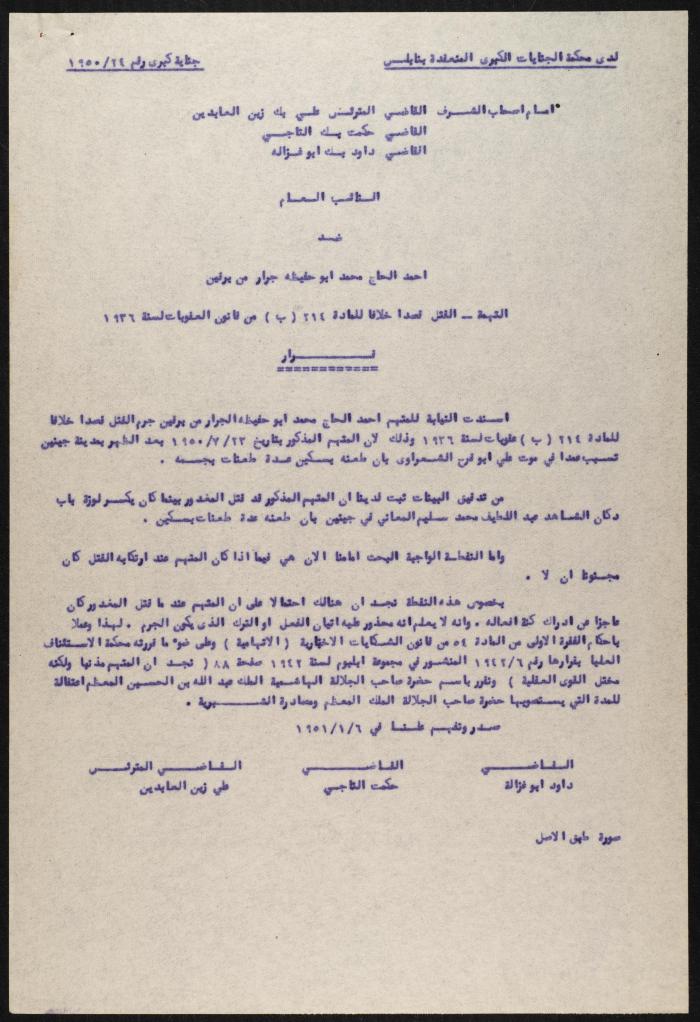 لدى محكمة الجنايات الكبرى المنعقدة بنابلس
جناية كبرى رقم ١٩٥٠/٢٤
امام اصحاب الشرف القاضي المترئس علي بك زين العابدين
القاضي حكمت بك التاجي
القاضي داود بك ابو غزاله
النائب العام
ضد
احمد الحاج محمد ابو حفيظه جرار من برقين
التهمة – القتل قصدا خلافا للمادة ٢١٤ ( ب ) من قانون العقوبات لسنة ١٩٣٦
قرار
اسندت النيابة للمتهم احمد الحاج محمد ابو حفيظه الجرار من برقين جرم القتل قصدا خلافا
للمادة ٢١٤ ( ب ) عقوبات لسنة ١٩٣٦ وذلك لان المتهم المذكور بتاريخ ١٩٥٠/٧/٢٣ بعد الظهر بمدينة جينين
تسبب عمدا في موت علي ابو فرح الشعراوى بان طعنه بسكين عدة طعنات بجسمه .
من تدقيق البينات ثبت لدينا ان المتهم المذكور قد قتل المغدور بينما كان يكسر لوزة باب
دكان الشاهد عبد اللطيف محمد سليم المعاني في جينين بان طعنه عدة طعنات بسكين .
واما النقطة الواجبة البحث امامنا الان هي فيما اذا كان المتهم عند ارتكابه القتل كان
مجنونا ان لا .
بخصوص هذه النقطة نجد ان هنالك احتمالا على ان المتهم عند ما قتل المغدور كان
عاجزا عن ادراك كنة افعاله . وانه لا يعلم انه محذور عليه اتيان الفعل او الترك الذى يكون الجرم . لهذا وعملا
باحكام الفقرة الاولى من المادة ٥٤ من قانون الشكايات الاخبارية ( الاتهامية ) وعلى ضوء ما قررته محكمة الاستئناف
العليا بقرارها رقم ١٩٤٢/٦ المنشور في مجموعة ابليوم لسنة ١٩٤٢ صفحة ٨٨ ( نجد ان المتهم مذنبا ولكنه
مختل القوى العقلية ) ونقرر باسم حضرة صاحب الجلالة الهاشمية الملك عبد الله بن الحسين المعظم اعتقالة
للمدة التي يستصوبها حضرة صاحب الجلالة الملك المعظم ومصادرة الشبرية .
صدر وتفهم علنا في ١٩٥١/١/٦
القاضي القاضي القاضي المترئس
داود ابو غزالة حكمت التاجي علي زين العابدين
صورة طبق الاصل